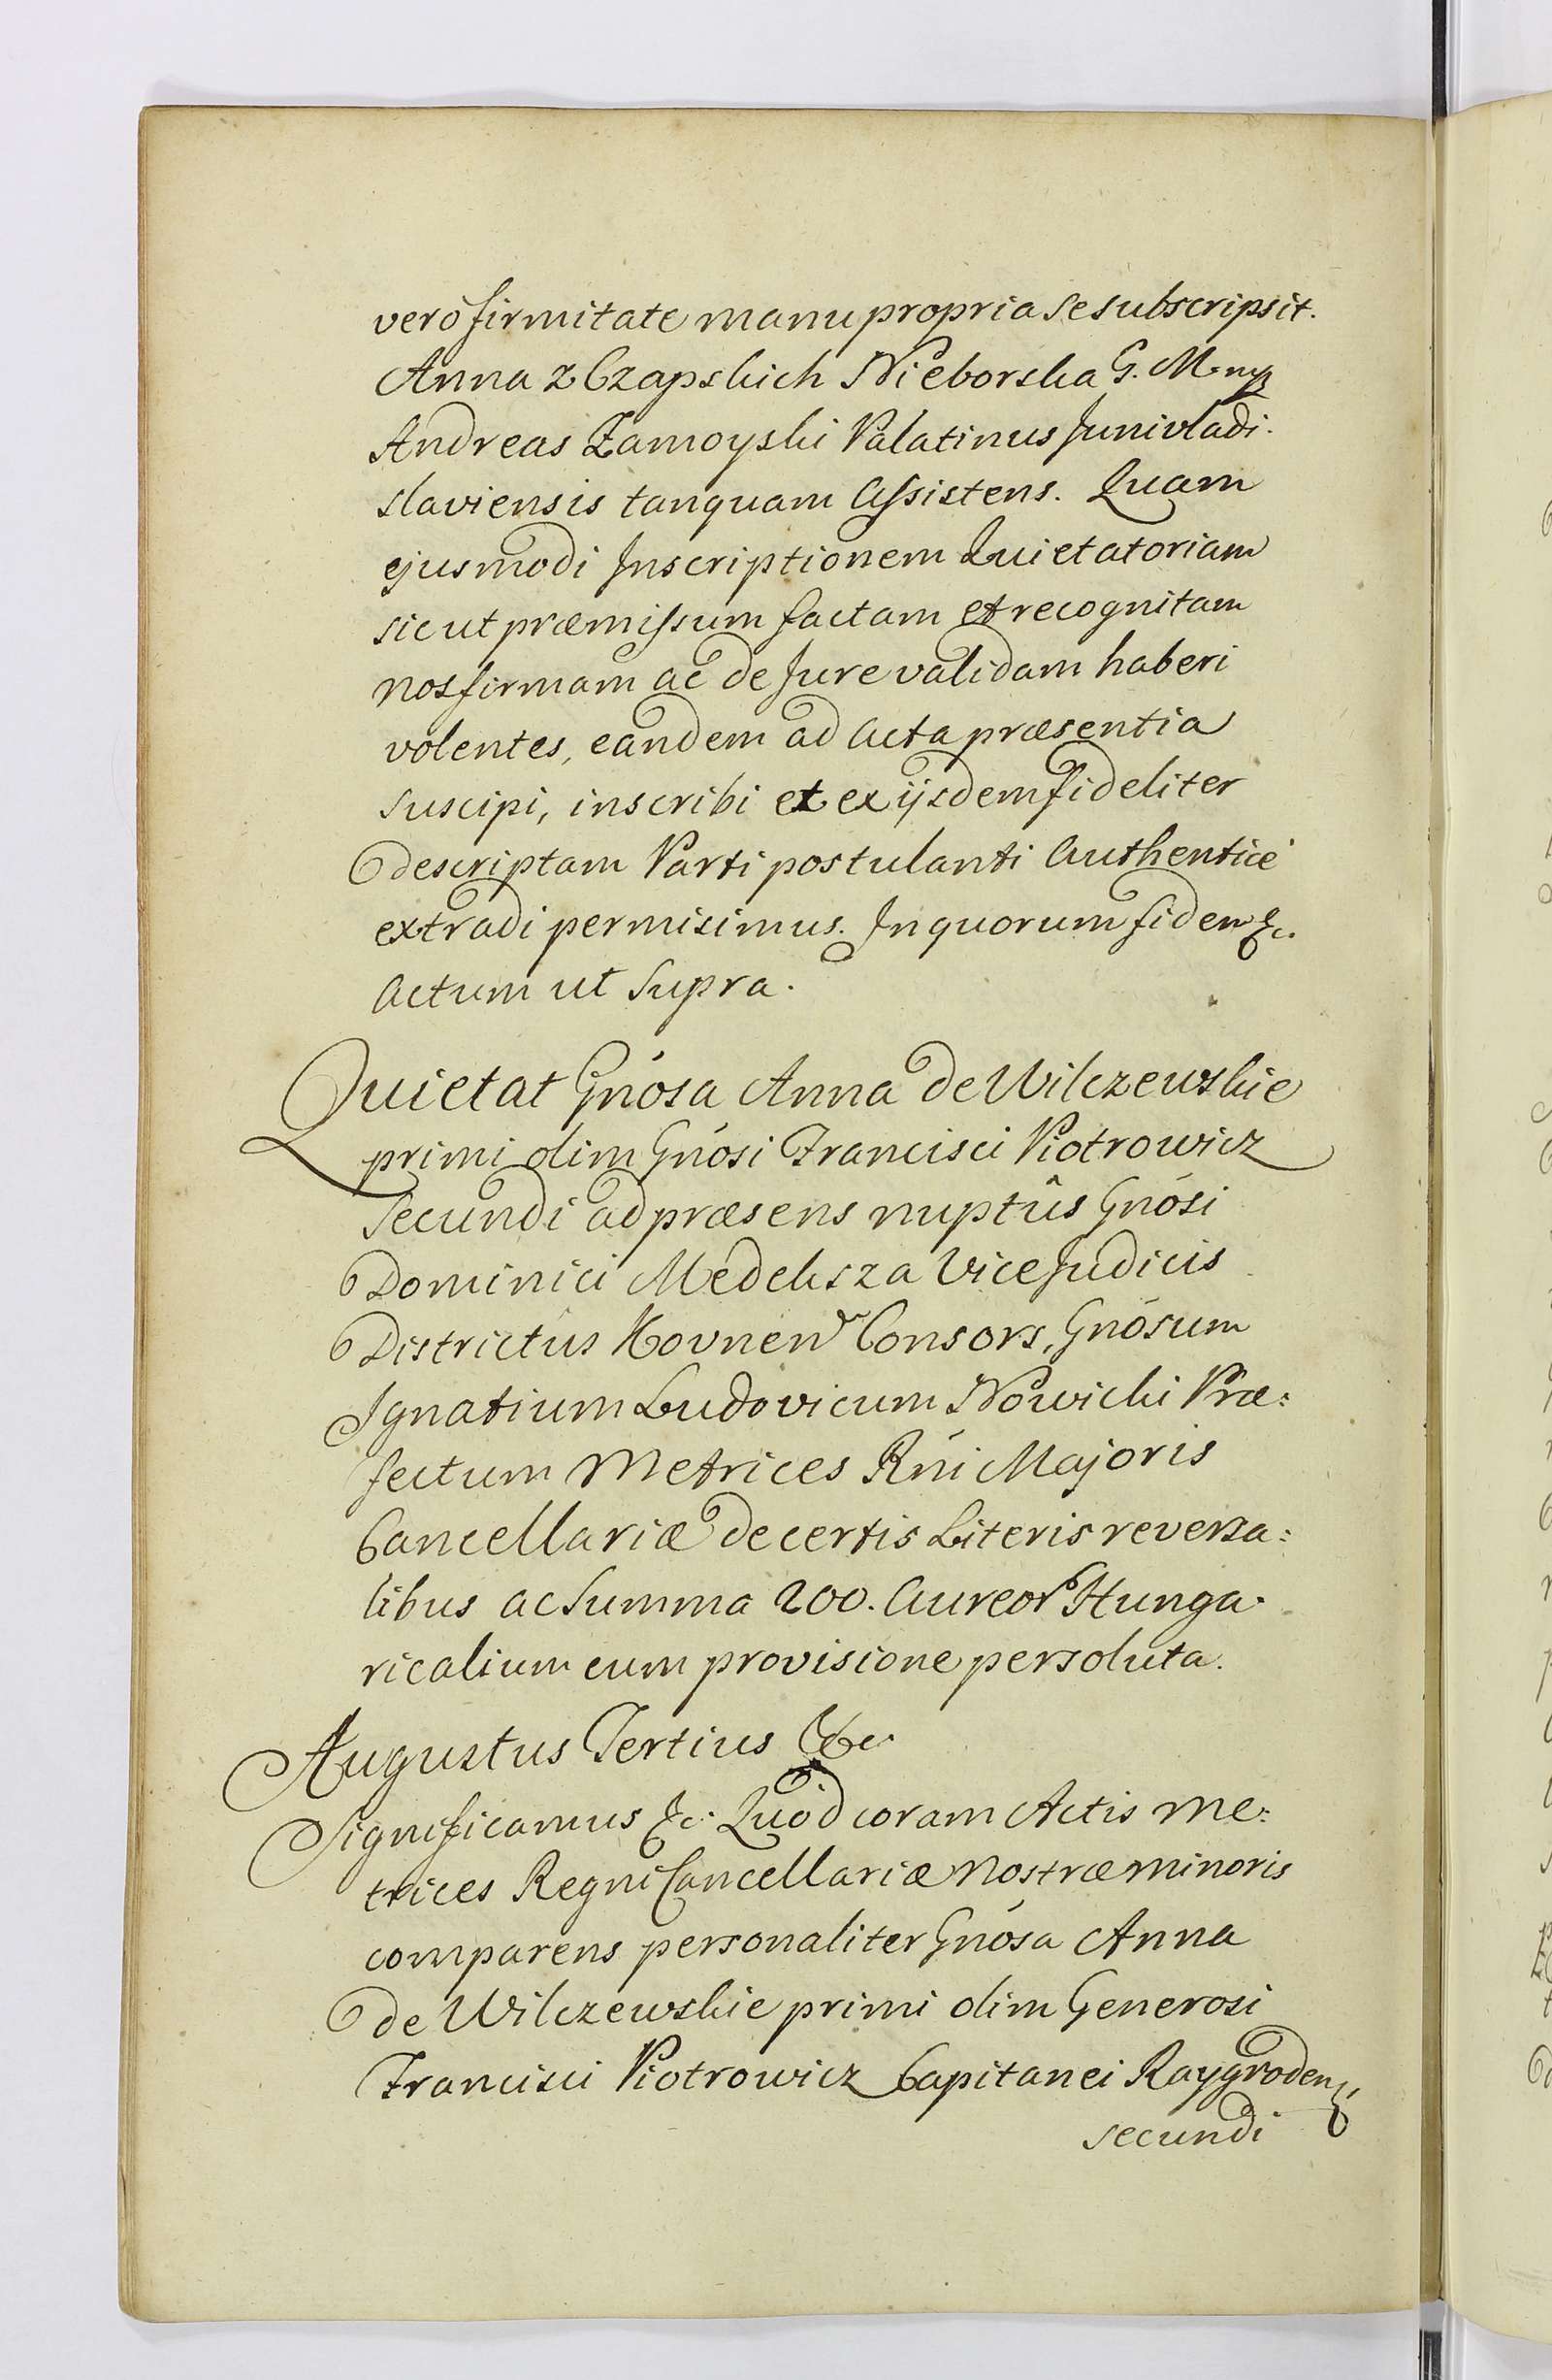 verò firmitate manu propria se subscripsit.
Anna z Czapskich Nieborska G. M. mp
Andreas Zamoyski Palatinus Junivladi-
slaviensis tanquam Assistens. Quam
ejusmodi Inscriptionem Quietatoriam
sicut præmissum factam et recognitam
nos firmam ac de Jure validam haberi
volentes, eandem ad Acta præsentia
suscipi, inscribi et ex ijsdem fideliter
descriptam Parti postulanti Authenticè
extradi permisimus. In quorum fidem &c.
Actum ut Supra.
Quietat Gnósa Anna de Wilczewskie
primi olim Gnósi Francisci Piotrowicz
Secundi ad præsens nuptûs Gnósi
Dominici Medeksza Vice Judicis
Districtûs Kovnen Consors, Gnósum
Ignatium Ludovicum Nowicki Præ:
fectum Metrices Rni Majoris
Cancellariæ de certis Literis reversa:
libus ac Summa 200. Aureor Hunga-
ricalium cum provisione persoluta.
Augustus Tertius &c.
Significamus &c. Quod coram Actis Me:
trices Regni Cancellariæ Nostræ minoris
comparens personaliter Gnósa Anna
de Wilczewskie primi olim Generosi
Francisci Piotrowicz Capitanei Raygroden,
secundi